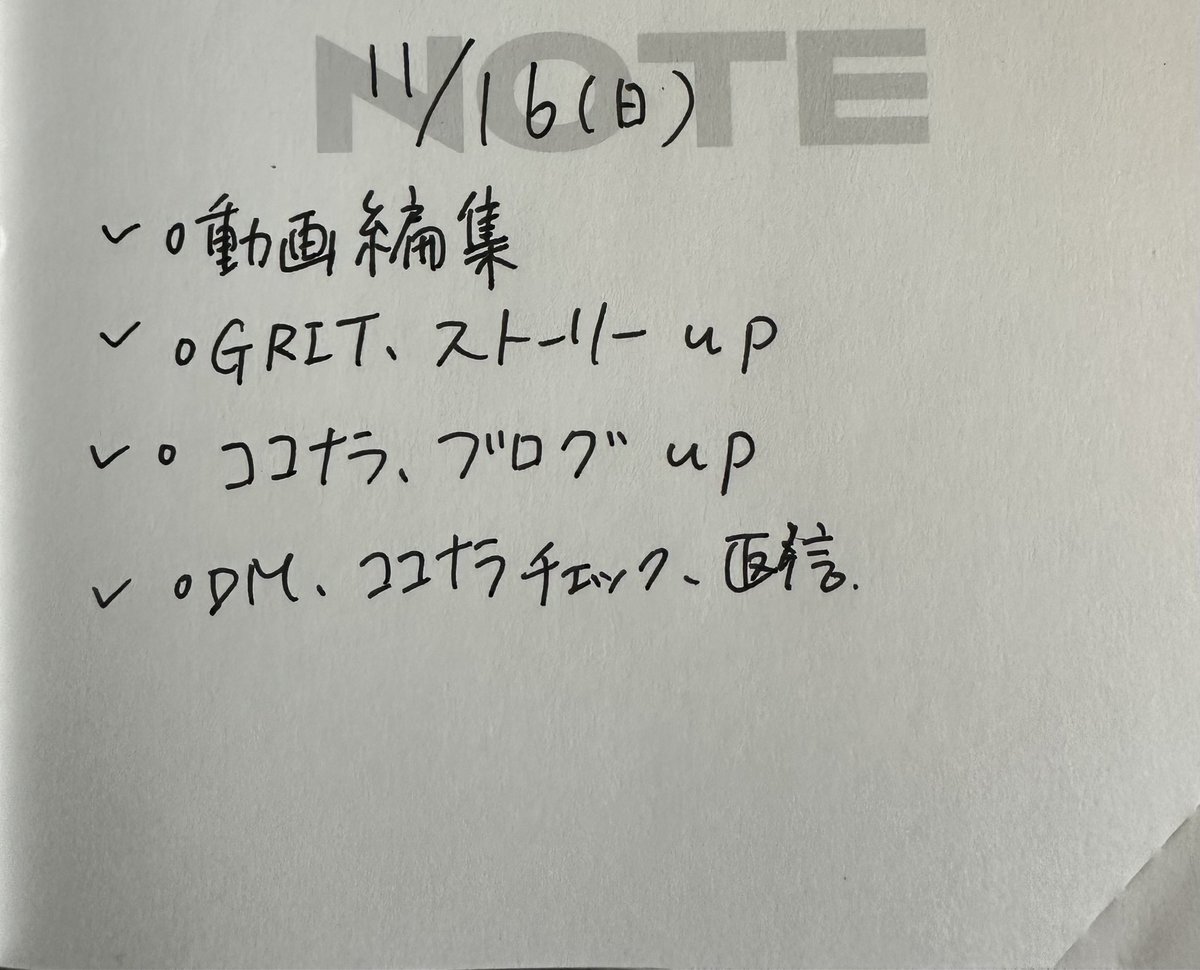 NOTE
11/16(日)
✓ ○動画編集
✓ ○GRIT、ストーリーup
✓ ○ココナラ、ブログup
✓ ○DM、ココナラチェック、返信.